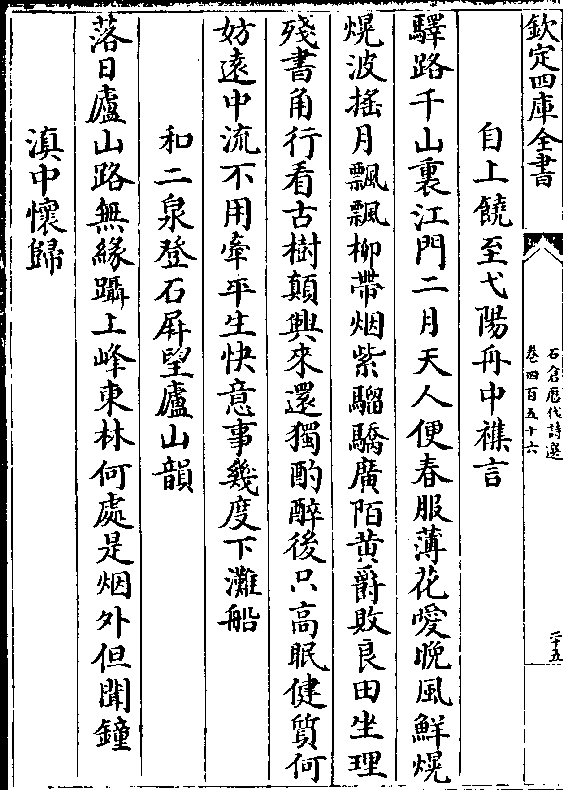 欽定四庫全書
石倉歷代詩選
卷四百五十六
二十五
自上饒至弋陽舟中襍言
驛路千山裏江門二月天人便春服薄花愛晚風鮮熀
熀波搖月飄飄柳帶烟紫騮驕廣陌黄爵敗良田坐理
殘書角行看古樹顛興來還獨酌醉後只高眠健質何
妨遠中流不用牽平生快意事幾度下灘船
和二泉登石屏望廬山韻
落日廬山路無緣躡上峰東林何處是烟外但聞鐘
滇中懷歸